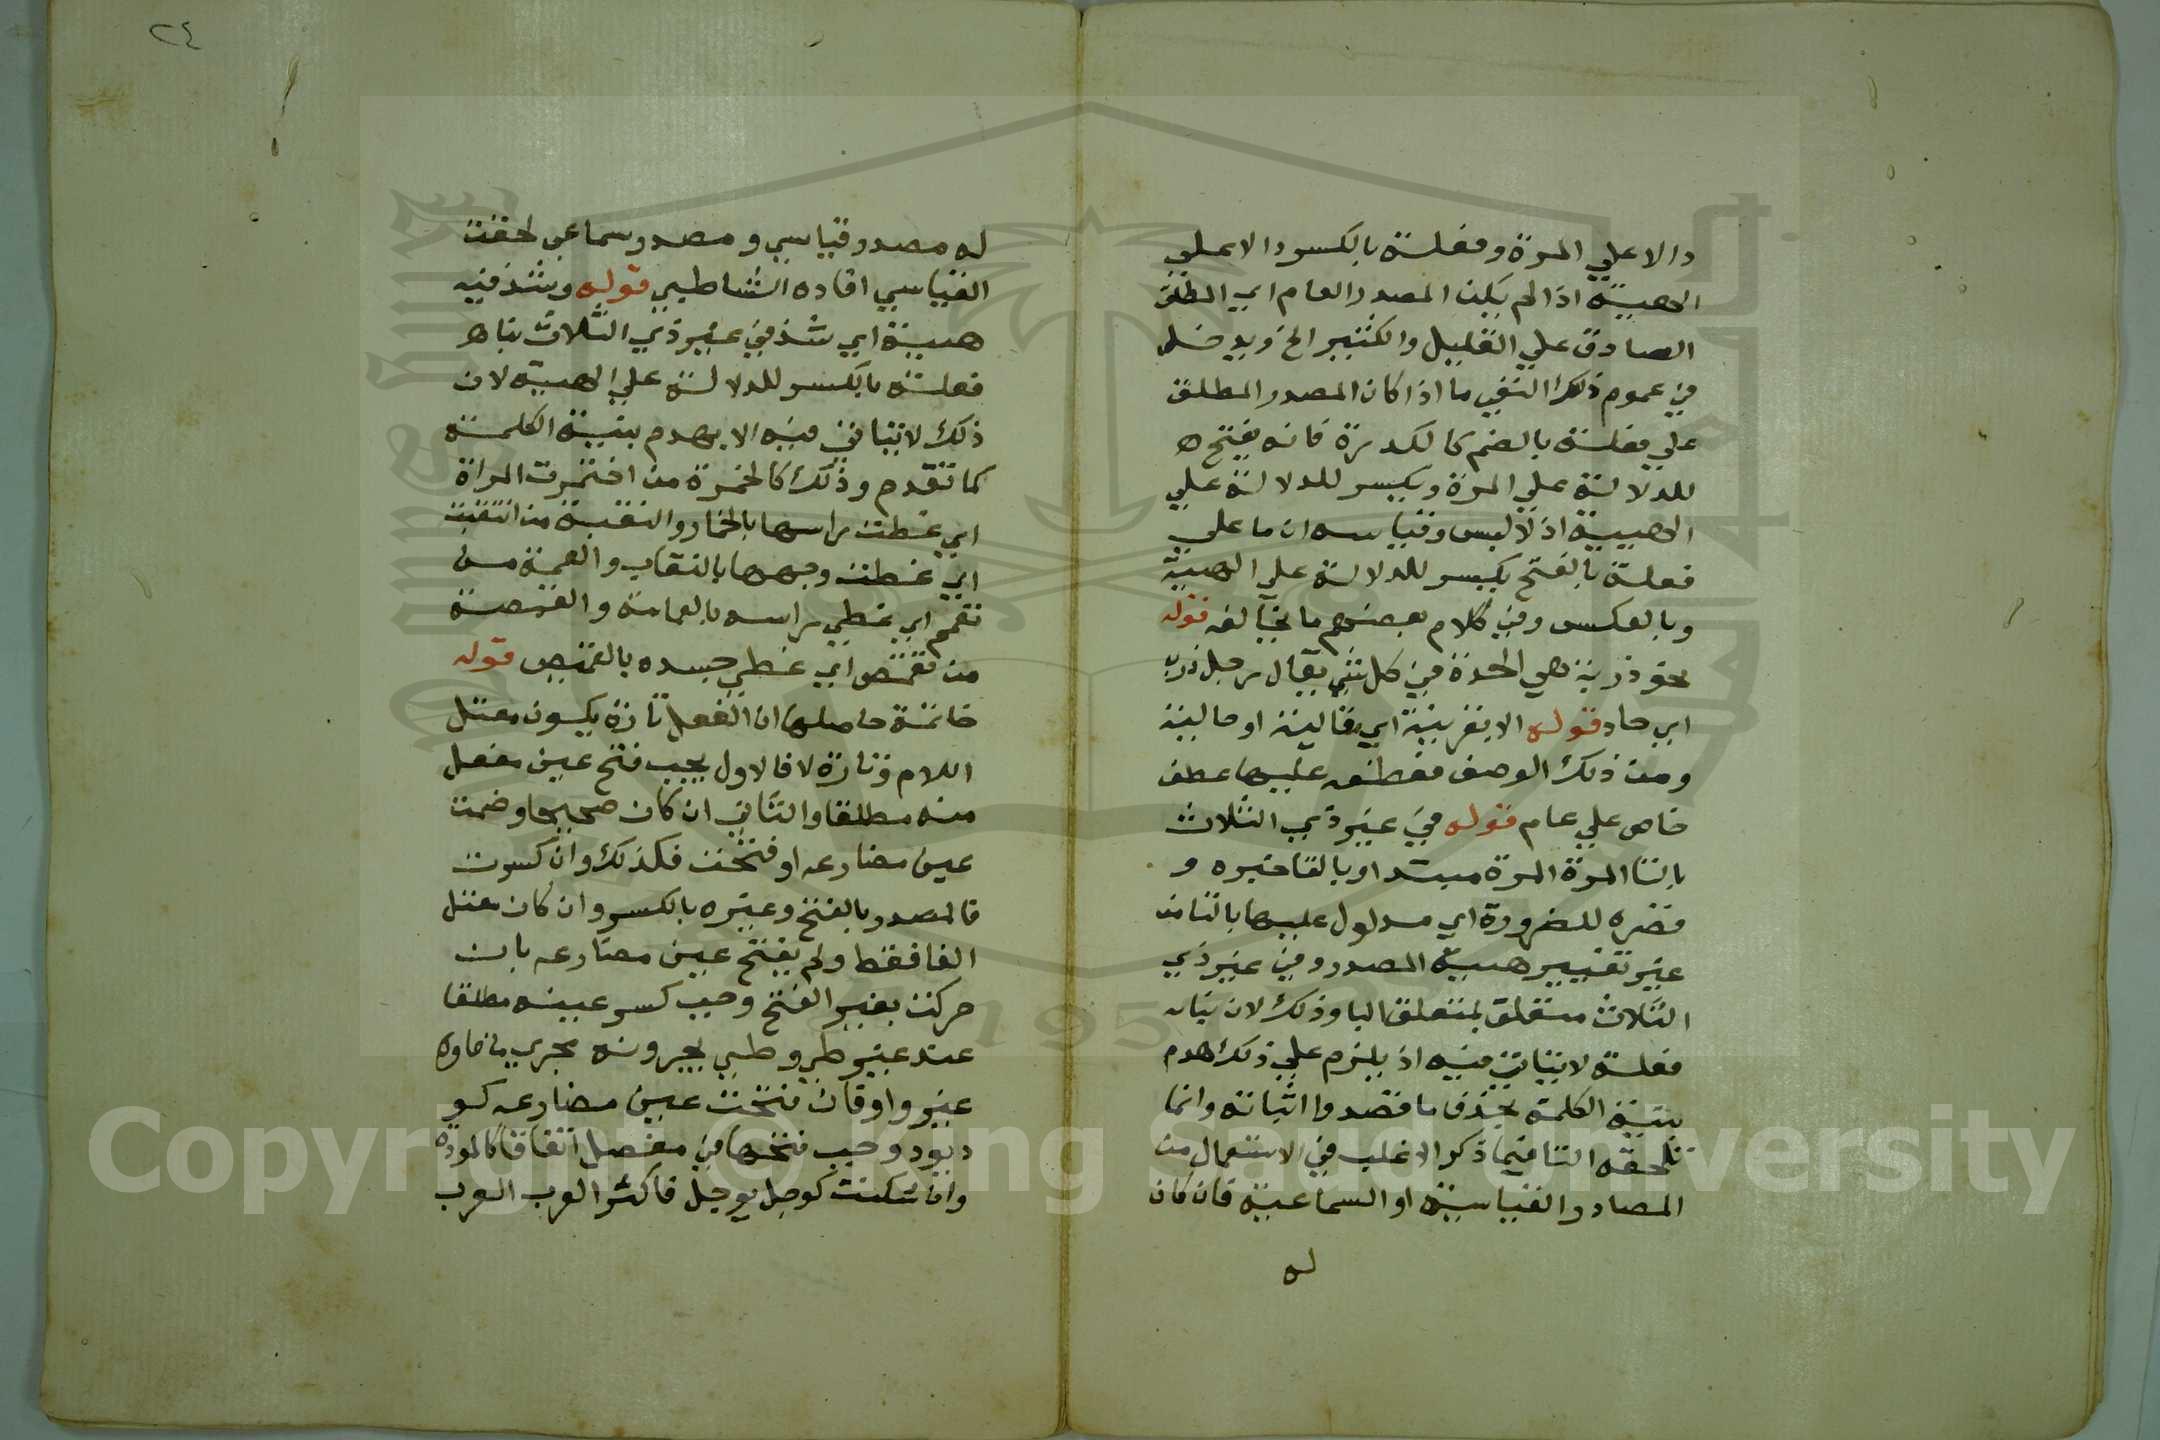 دالا علي المرة وفعلة بالكسر دالا علي
الهيئة اذا لم يكن المصدر العام اي المطلق
الصادق علي القليل والكثير الخ ويدخل
في عموم ذلك النفي ما اذا كان المصدر المطلق
علي فعلة بالضم كالكدرة فانه يفتح
للدلالة علي المرة ويكسر للدلالة علي
الهيئة اذ لا لبس وقياسه ان ما علي
فعلة بالفتح يكسر للدلالة علي الهيئة
وبالعكس وفي كلام بعضهم ما يخالفه قوله
نحو ذربة هي الحدة في كل شي يقال رجل ذرب
اي حاد قوله الا بقرينة اي مقالية او حالية
ومن ذلك الوصف فعطفه عليها عطف
خاص علي عام قوله في غير ذي الثلاث
بالتا المرة المرة مبتدا وبالتا خبره و
قصره للضرورة اي مدلول عليها بالتا من
غير تغيير هيئة المصدر وفي غير ذي
الثلاث متعلق بمتعلق البا وذلك لان بنا
فعلة لا يتاتي فيه اذ يلزم علي ذلك هدم
بنية الكلمة بحذف ما قصدوا اثباته وانما
تلحقه التا فيما ذكر الاغلب في الاستعمال من
المصادر القياسية او السماعية فان كان
له
٢٤
له مصدر قياسي ومصدر سماعي لحقت
القياسي افاده الشاطبي قوله وشذ فيه
هيئة اي شذ في غير ذي الثلاث بنا
فعلة بالكسر للدلالة علي الهيئة لان
ذلك لا يتاتي فيه الا بهدم بنية الكلمة
كما تقدم وذلك كالخمرة من اختمرت المراة
اي غطت راسها بالخمار والنقبة من انتقبت
اي غطت وجهها بالنقاب والعمة من
تعمم اي غطي راسه بالعمامة والقمصة
من تقمص اي غطي جسده بالقميص قوله
خاتمة حاصلها ان الفعل تارة يكون معتل
اللام وتارة لا فالاول يجب فتح عين مفعل
منه مطلقا والثاني ان كان صحيحا وضمت
عين مضارعه او فتحت فكذلك وان كسرت
فالمصدر بالفتح وغيره بالكسر وان كان معتل
الفا فقط ولم يفتح عين مضارعه بان
حركت بغير الفتح وجب كسر عينه مطلقا
عند غير طي وطي يجرونه مجري ما فاوه
غير واو فان فتحت عين مضارعه كيو
د يود وجب فتحها في مفعل اتفاقا كالمودة
وان سكنت كوجل يوجل فاكثر العرب العرب